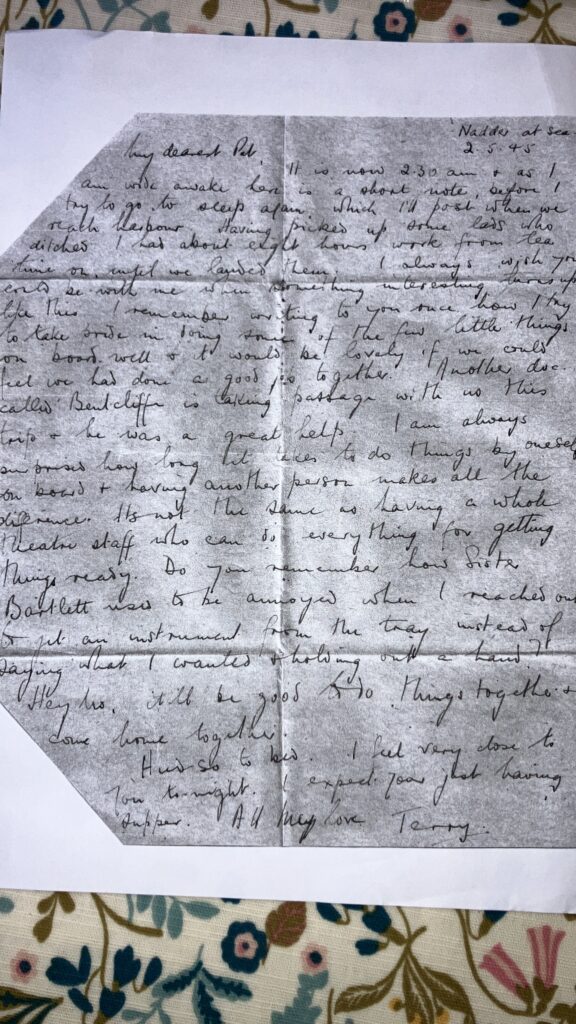 Nadder at Sea
2.5.45
My dearest Pat,
It is now 2.30 am & as I
am wide awake here is a short note, before I
try to go to sleep again, which I'll post when we
reach harbour. Having picked up some lads who
ditched I had about eight hours work from tea
time on, until we landed them. I always wish you
could be with me when something interesting turns up
like this. I remember writing to you once how I try
to take pride in doing some of the few little things
on board well & it would be lovely if we could
feel we had done a good job together. Another doc.
called Bentcliffe is taking passage with us this
trip & he was a great help. I am always
surprised how long it takes to do things by oneself
on board & having another person makes all the
difference. Its not the same as having a whole
theatre staff who can do everything for getting
things ready. Do you remember how Sister
Bartlett used to be annoyed when I reached out
to get an instrument from the tray instead of
saying what I wanted & holding out a hand?
Hey ho, it'll be good to do things together &
come home together.
to bed. I feel very close to
you to-night. I expect your just having
supper. All my love Terry.